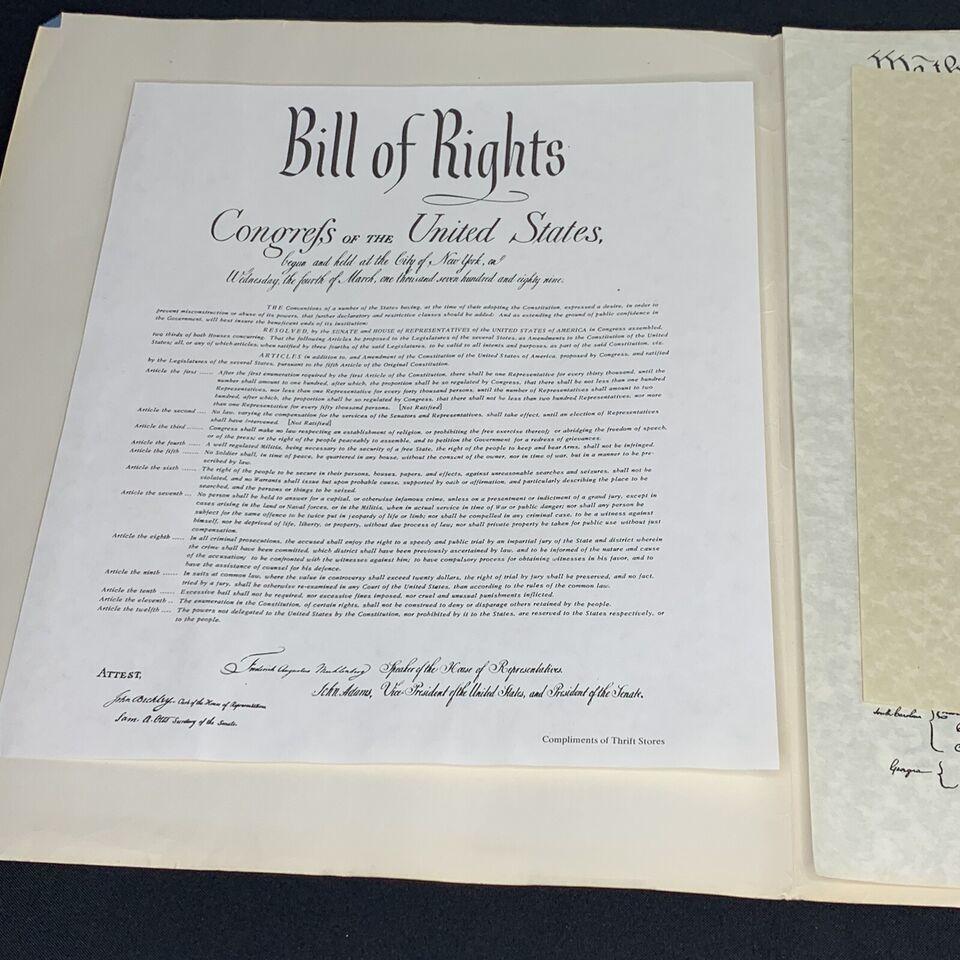 Bill of Rights
Congreſs OF THE United States,
begun and held at the City of New York, on
Wednesday, the fourth of March, one thousand seven hundred and eighty nine.
THE Conventions of a number of the States having, at the time of their adopting the Constitution, expressed a desire, in order to
prevent misconstruction or abuse of its powers, that further declaratory and restrictive clauses should be added: And as extending the ground of public confidence in
the Government, will best insure the beneficent ends of its institution:
RESOLVED, by the SENATE and HOUSE of REPRESENTATIVES of the UNITED STATES of AMERICA in Congress assembled,
two thirds of both Houses concurring. That the following Articles be proposed to the Legislatures of the several States, as Amendments to the Constitution of the United
States; all, or any of which articles, when ratified by three fourths of the said Legislatures, to be valid to all intents and purposes, as part of the said Constitution, viz.
ARTICLES in addition to, and Amendment of the Constitution of the United States of America, proposed by Congress, and ratified
by the Legislatures of the several States, pursuant to the fifth Article of the Original Constitution.
Article the first ...... After the first enumeration required by the first Article of the Constitution, there shall be one Representative for every thirty thousand, until the
number shall amount to one hundred, after which, the proportion shall be so regulated by Congress, that there shall be not less than one hundred
Representatives, nor less than one Representative for every forty thousand persons, until the number of Representatives shall amount to two
hundred, after which, the proportion shall be so regulated by Congress, that there shall not be less than two hundred Representatives, nor more
than one Representative for every fifty thousand persons. [Not Ratified]
Article the second .... No law, varying the compensation for the services of the Senators and Representatives, shall take effect, until an election of Representatives
shall have intervened. [Not Ratified]
Article the third ...... Congress shall make no law respecting an establishment of religion, or prohibiting the free exercise thereof; or abridging the freedom of speech,
or of the press; or the right of the people peaceably to assemble, and to petition the Government for a redress of grievances.
Article the fourth ..... A well regulated Militia, being necessary to the security of a free State, the right of the people to keep and bear Arms, shall not be infringed.
Article the fifth ...... No Soldier shall, in time of peace, be quartered in any house, without the consent of the owner, nor in time of war, but in a manner to be pre-
scribed by law.
Article the sixth ...... The right of the people to be secure in their persons, houses, papers, and effects, against unreasonable searches and seizures, shall not be
violated, and no Warrants shall issue but upon probable cause, supported by oath or affirmation, and particularly describing the place to be
searched, and the persons or things to be seized.
Article the seventh ... No person shall be held to answer for a capital, or otherwise infamous crime, unless on a presentment or indictment of a grand jury, except in
cases arising in the land or Naval forces, or in the Militia, when in actual service in time of War or public danger; nor shall any person be
subject for the same offence to be twice put in jeopardy of life or limb; nor shall be compelled in any criminal case, to be a witness against
himself, nor be deprived of life, liberty, or property, without due process of law; nor shall private property be taken for public use without just
compensation.
Article the eighth ..... In all criminal prosecutions, the accused shall enjoy the right to a speedy and public trial by an impartial jury of the State and district wherein
the crime shall have been committed, which district shall have been previously ascertained by law, and to be informed of the nature and cause
of the accusation; to be confronted with the witnesses against him; to have compulsory process for obtaining witnesses in his favor, and to
have the assistance of counsel for his defence.
Article the ninth ...... In suits at common law, where the value in controversy shall exceed twenty dollars, the right of trial by jury shall be preserved, and no fact,
tried by a jury, shall be otherwise re-examined in any Court of the United States, than according to the rules of the common law.
Article the tenth ...... Excessive bail shall not be required, nor excessive fines imposed, nor cruel and unusual punishments inflicted.
Article the eleventh .. The enumeration in the Constitution, of certain rights, shall not be construed to deny or disparage others retained by the people.
Article the twelfth .... The powers not delegated to the United States by the Constitution, nor prohibited by it to the States, are reserved to the States respectively, or
to the people.
Frederick Augustus Muhlenberg Speaker of the House of Representatives.
John Adams, Vice-President of the United States, and President of the Senate.
ATTEST,
John Beckley, Clerk of the House of Representatives
Sam. A. Otis Secretary of the Senate.
Compliments of Thrift Stores
South Carolina
Georgia